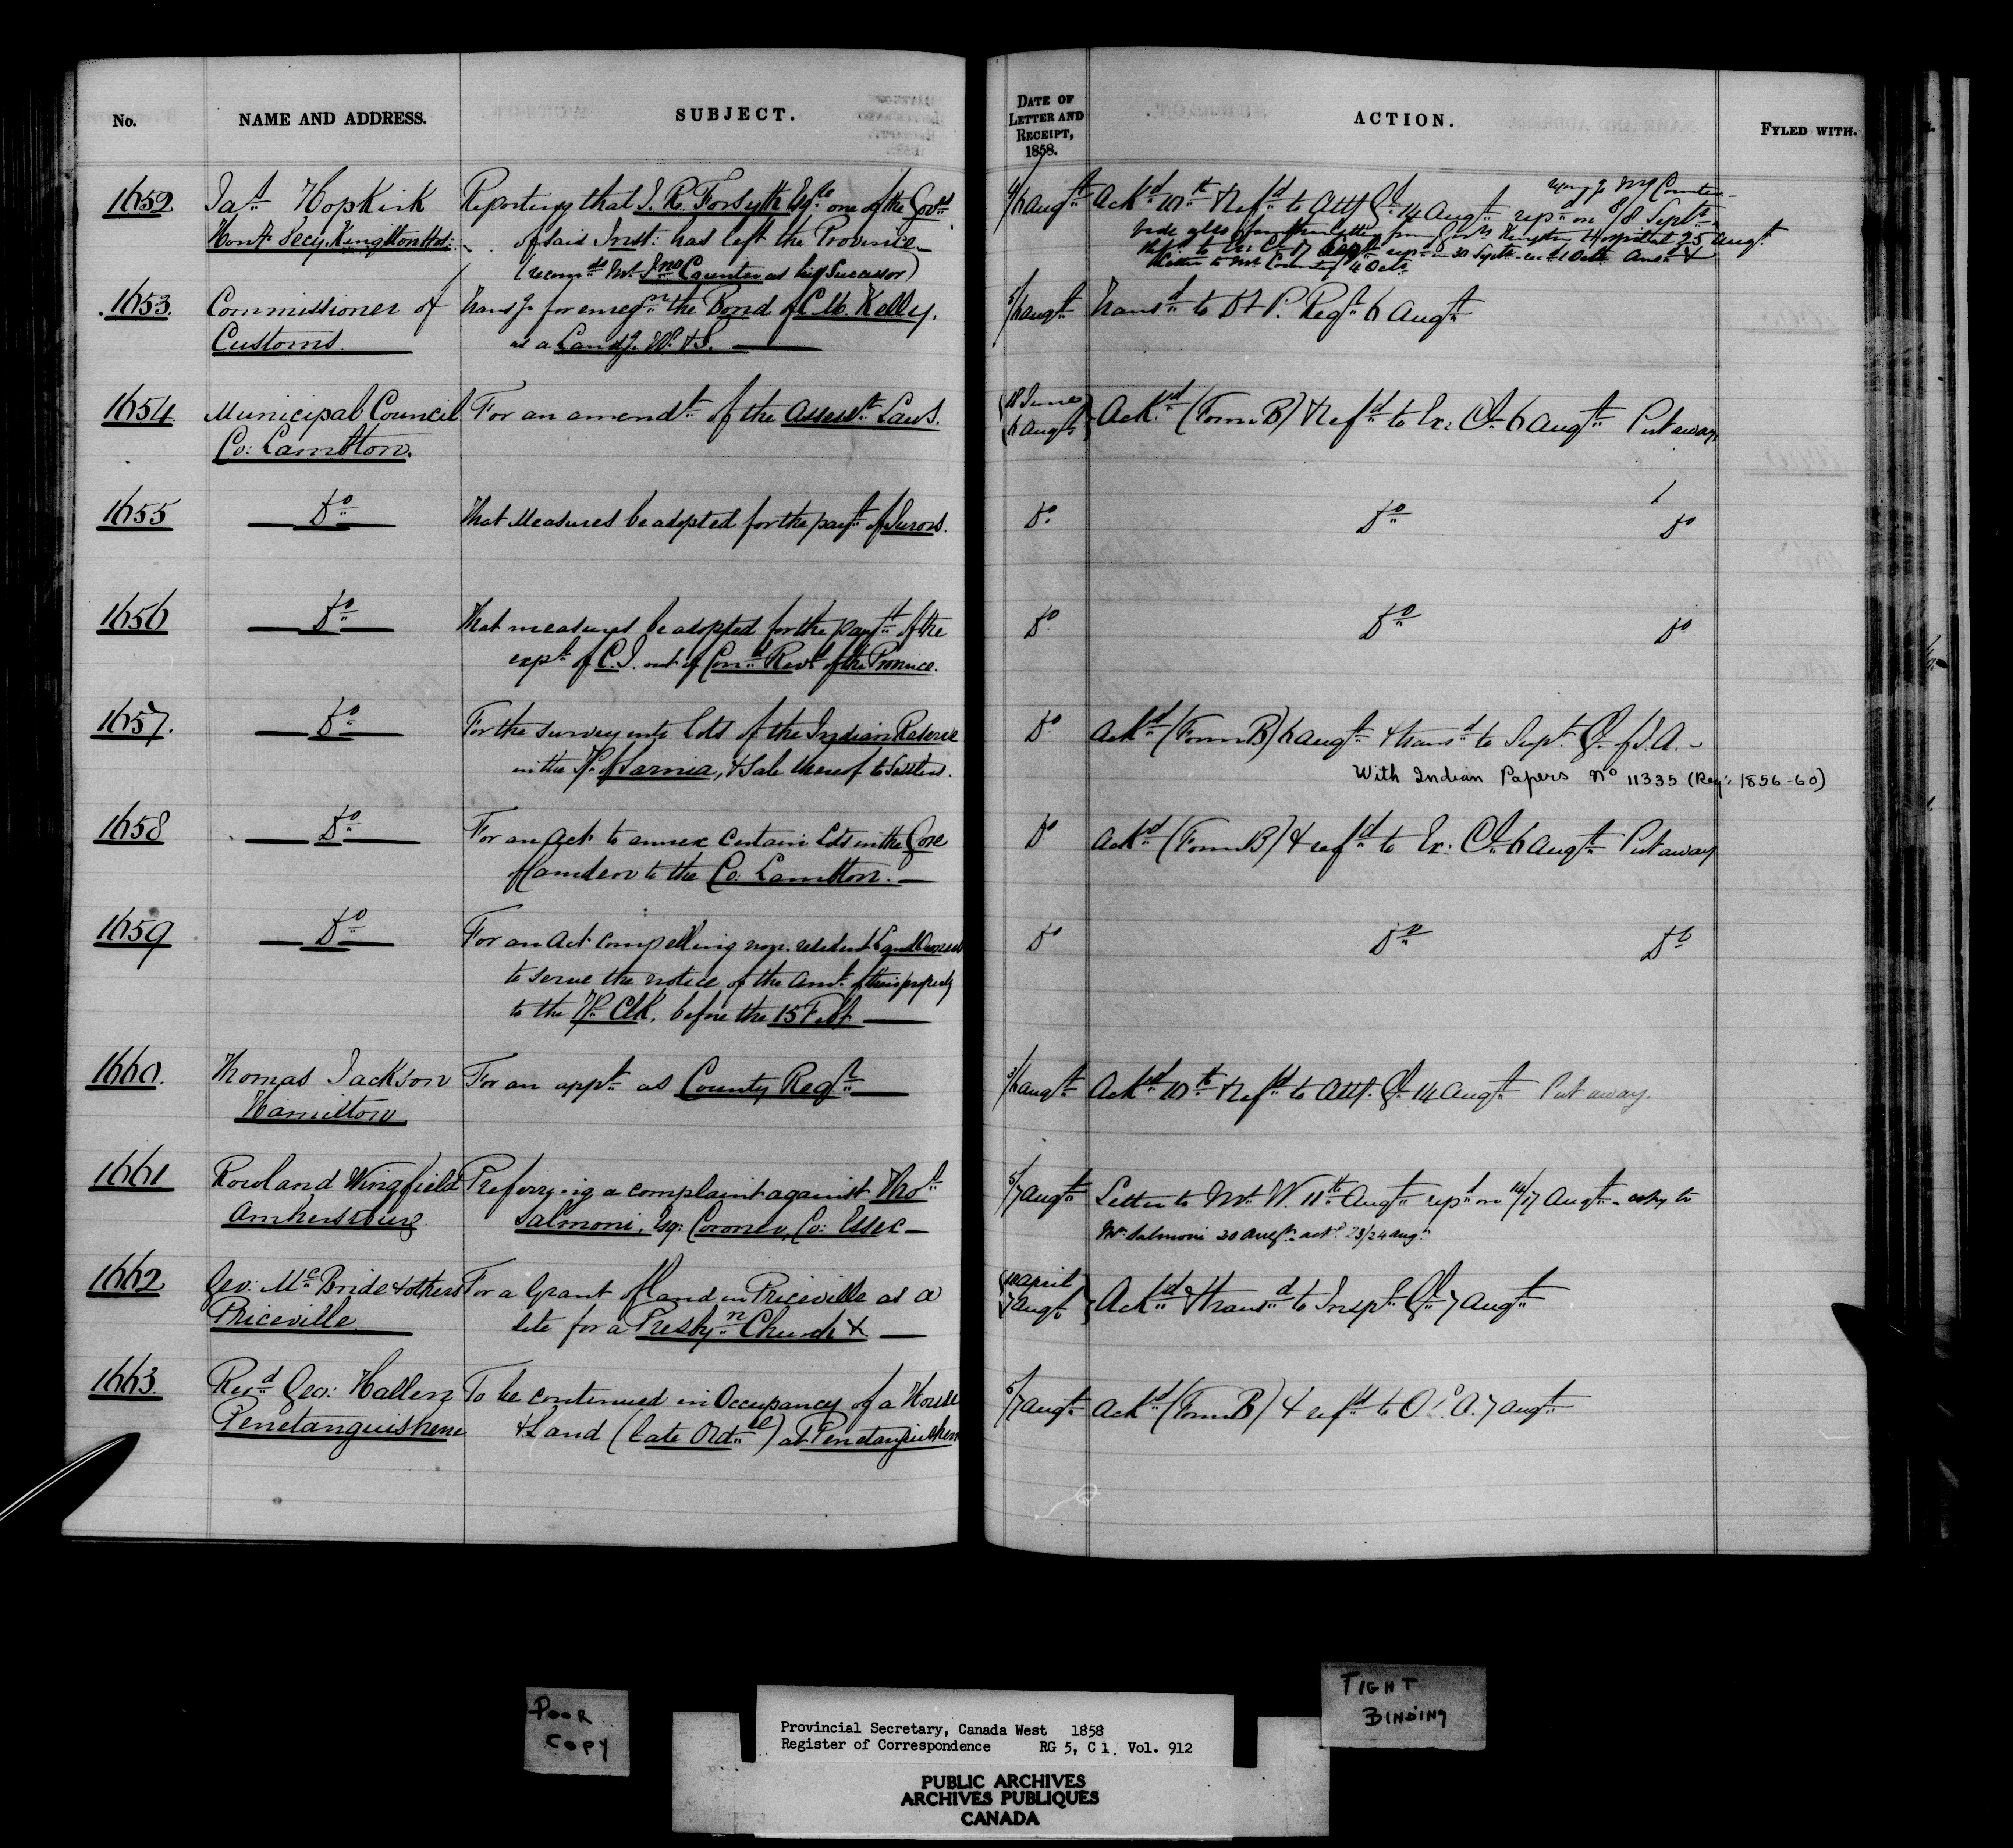 No. NAME AND ADDRESS. SUBJECT. DATE OF LETTER AND RECEIPT, 1858. ACTION. FYLED WITH.
1652 Jas Hopkirk Reporting that J. R. Forsyth Esqre one of the Govrs 4/6 Augt Ackd 10th & Refd to Atty Gl 14 Augt repd on 8/8 Septr
Hony Secy Kingston Hosl: of said Inst: has left the Province
(recomds Mr Jno Counter as his Successor)
1653. Commissioner of Transg for enregn the Bond of C. M. Kelley, 5/6 Augt Transd to D P. Regr 6 Augt
Customs. as a Landg. W. & S.
1654. Municipal Council For an amendt of the Assesst Laws. (18 June 6 Augt) Ackd (Form B) & Refd to Ex: Cl 6 Augt Put away
Co: Lambton.
1655 Do That Measures be adopted for the payt of Jurors. Do Do Do
1656 Do That measures be adopted for the payt of the Do Do Do
exps of C. J. out of Cond Revs of the Province.
1657. Do For the survey into lots of the Indian Reserve Do Ackd (Form B) 6 Augt & transd to Supt Gl of I. A.
in the Tp. of Sarnia, & Sale thereof to Settlers.
With Indian Papers No 11335 (Reg: 1856-60)
1658 Do For an Act to annex certain lots in the Gore Do Ackd (Form B) & refd to Ex: Cl 6 Augt Put away
of Camden to the Co. Lambton.
1659 Do For an Act compelling non-resident Land Owners Do Do Do
to serve the notice of the amt of their property
to the Tp. Clk. before the 15 Feb.
1660. Thomas Jackson For an appt as County Regr 5/6 Augt Ackd 10th & Refd to Atty. Gl 14 Augt Put away.
Hamilton
1661 Rowland Wingfield Preferring a complaint against Thos 5/7 Augt Letter to Mr W. 11th Augt repd on 14/17 Augt copy to
Amherstburg Salmoni, Esq: Coroner, Co: Essex Mr Salmoni 20 Augt ackd 23/24 Augt
1662 Geo: McBride & others For a Grant of land in Priceville as a (10 April 7 Augt) Ackd & transd to Inspr Gl 7 Augt
Priceville site for a Presbyn Church &
1663. Revd Geo: Hallen To be continued in Occupancy of a House 5/7 Augt Ackd (Form B) & refd to O. A. 7 Augt
Penetanguishene & Land (late Ordce) at Penetanguishene
POOR COPY
TIGHT BINDING
Provincial Secretary, Canada West 1858
Register of Correspondence RG 5, C 1. Vol. 912
PUBLIC ARCHIVES
ARCHIVES PUBLIQUES
CANADA